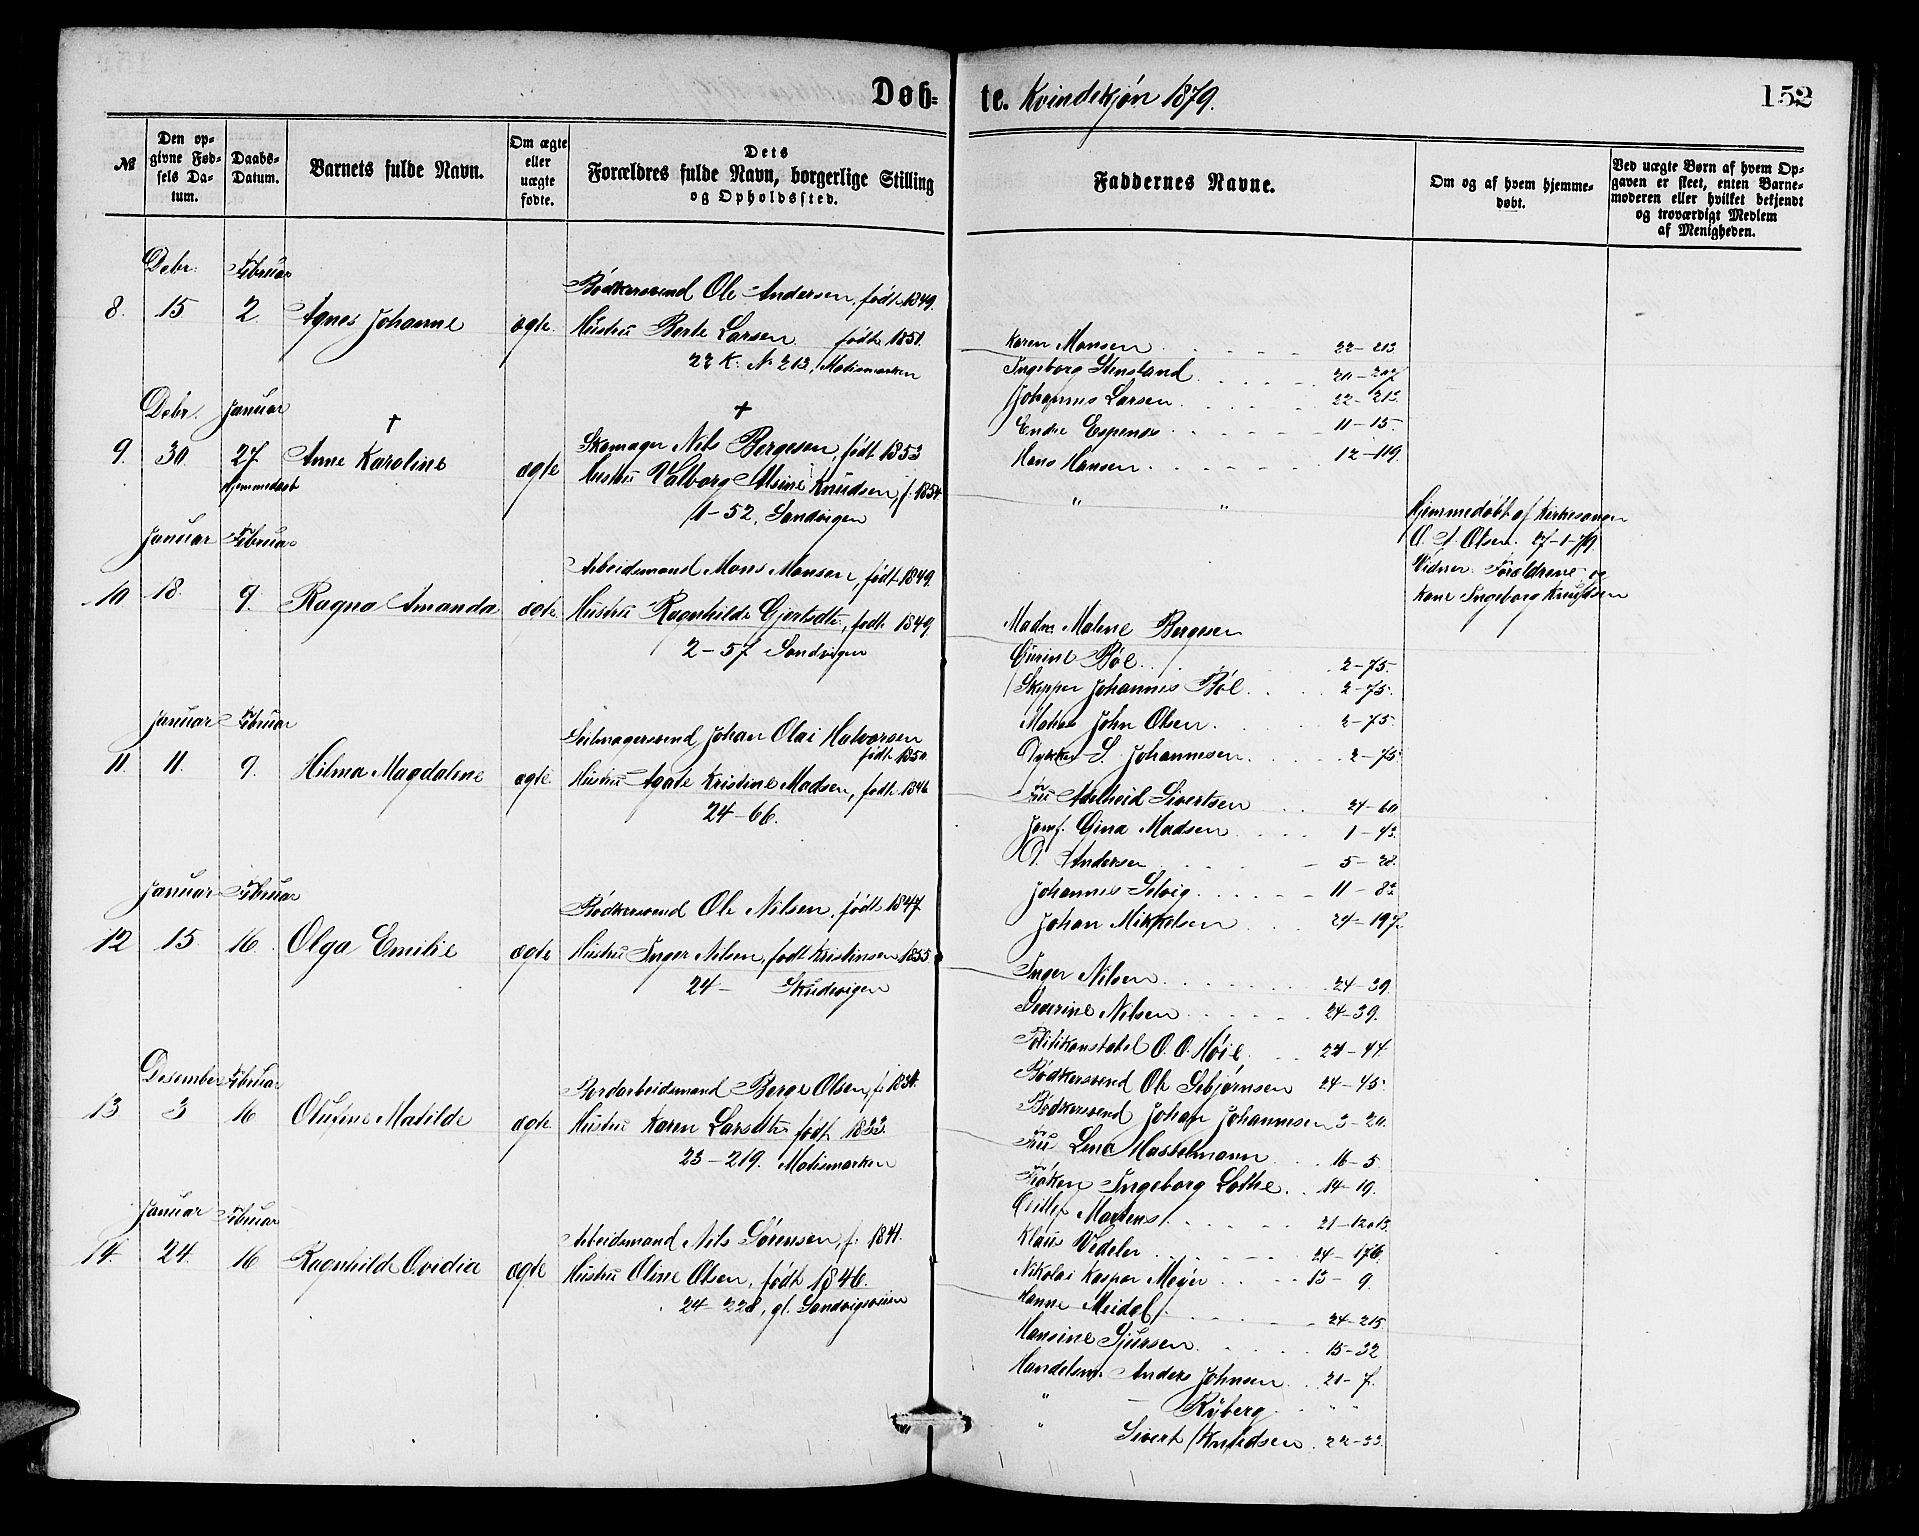 Døb=
te. Kvindekjøn 1879.
152
№
Den op-
givne Fød-
sels Da-
tum.
Daabs-
Datum.
Barnets fulde Navn.
Om ægte
eller
uægte
fødte.
Dets
Forældres fulde Navn, borgerlige Stilling
og Opholdssted.
Faddernes Navne.
Om og af hvem hjemme-
døbt.
Ved uægte Børn af hvem Op-
gaven er skeet, enten Barne-
moderen eller hvilket bekjendt
og troværdigt Medlem
af Menigheden.
Debr. Februar
8. 15 2. Agnes Johanne ægte.
Bødkersvend Ole Andersen, født 1849.
Hustru Berte Larsen født 1851.
22 K. № 213, Møllsmarken
Debr. Januar
† †
9. 30. 27. Anne Karoline ægte
Hjemmedøbt
Skomager Nils Bergesen, født 1853
Hustru Valborg Alsine Knudsen, f. 1854
1-52, Sandvigen
Januar Februar
10 18. 9. Ragna Amanda ægte
Arbeidsmand Mons Monsen, født 1849.
Hustru Ragnhilde Gjertsdtr, født 1849.
2-57 Sandvigen
Januar Februar
11. 11. 9. Hilma Magdalene ægte
Seilmagersvend Johan Olai Halvorsen
født 1850
Hustru Agate Kristine Madsen, født 1846
24-66.
Januar Februar
12 15. 16. Olga Emilie ægte
Bødkersvend Ole Nilsen, født 1847.
Hustru Inger Nilsen, født Kristinsen 1855
24- Skudevigen
Desember Februar
13 3 16 Olufine Matilde ægte
Bordarbeidsmand Berge Olsen, f. 1834.
Hustru Karen Larsdtr født 1833.
23-219. Møllsmarken
Januar Februar
14. 24. 16 Ragnhilde Ovidia ægte
Arbeidsmand Nils Sørensen, f. 1841.
Hustru Oline Olsen, født 1846.
24-228, gl. Sandvigsveien
Karen Monsen 22-213
Ingeborg Stensland 20-207
Johannes Larsen 22-213
Endre Espenes 11-15.
Hans Hansen 12-119.
" "
Madm Malene Bergesen
Gurine Bøe 2-75.
Skipper Johannes Bøe 2-75.
John Olsen. 2-75.
S. Johannesen 2-75
Fru Adelheid Sivertsen 24-60
Jomf. Gina Madsen 1-43.
O. Andersen 5-28.
Johannes Selvig 11-82
Johan Mikkelsen 24-197
Inger Nilsen 24-39.
Severine Nilsen 24-39.
Politikonstabel O. O. Høie. 24-44.
Bødkersvend Ole Sebjørnsen 24-45
Bødkersvend Johan Johannesen 3-20.
Fru Lena Hasselmann 16-5.
Frøken Ingeborg Lothe. 14-19.
Ditlef Martens. 21-12 & 13.
Klaus Wedeler 24-176.
Nikolai Kasper Meyer 13-9.
Hanne Meidel 24-215.
Hansine Sjursen 15-32
Handelsm. Anders Johnsen 21-7.
" - Ryberg " "
" Sivert Knudsen 22-33.
Hjemmedøbt af Kirkesanger
O. A. Olsen. 27-1-79.
Vidner: Forældrene og
Kone Ingeborg Knudsen